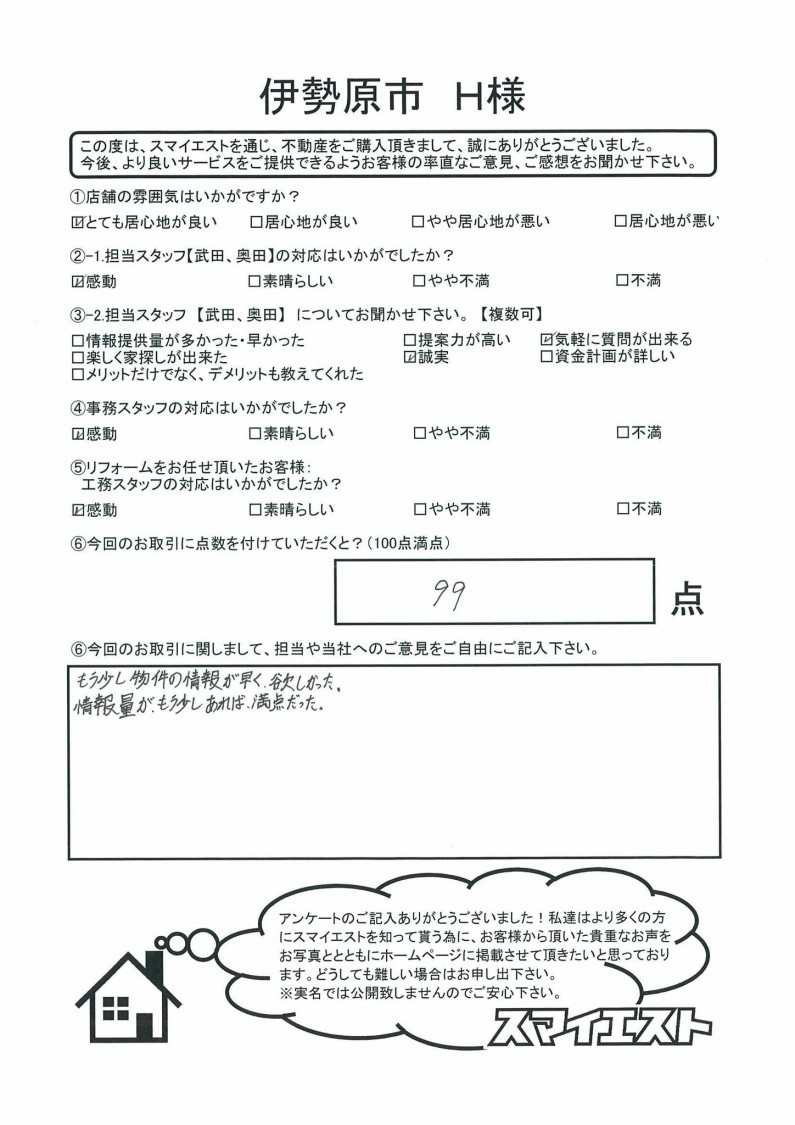 伊勢原市 H様
この度は、スマイエストを通じ、不動産をご購入頂きまして、誠にありがとうございました。
今後、より良いサービスをご提供できるようお客様の率直なご意見、ご感想をお聞かせ下さい。
①店舗の雰囲気はいかがですか？
☑とても居心地が良い □居心地が良い □やや居心地が悪い □居心地が悪い
②-1.担当スタッフ【武田、奥田】の対応はいかがでしたか？
☑感動 □素晴らしい □やや不満 □不満
③-2.担当スタッフ 【武田、奥田】 についてお聞かせ下さい。【複数可】
□情報提供量が多かった・早かった □提案力が高い ☑気軽に質問が出来る
□楽しく家探しが出来た ☑誠実 □資金計画が詳しい
□メリットだけでなく、デメリットも教えてくれた
④事務スタッフの対応はいかがでしたか？
☑感動 □素晴らしい □やや不満 □不満
⑤リフォームをお任せ頂いたお客様：
工務スタッフの対応はいかがでしたか？
☑感動 □素晴らしい □やや不満 □不満
⑥今回のお取引に点数を付けていただくと？(100点満点)
99 点
⑥今回のお取引に関しまして、担当や当社へのご意見をご自由にご記入下さい。
もう少し物件の情報が早く、欲しかった。
情報量が、もう少しあれば、満点だった。
アンケートのご記入ありがとうございました！私達はより多くの方
にスマイエストを知って貰う為に、お客様から頂いた貴重なお声を
お写真とともにホームページに掲載させて頂きたいと思っており
ます。どうしても難しい場合はお申し出下さい。
※実名では公開致しませんのでご安心下さい。
スマイエスト